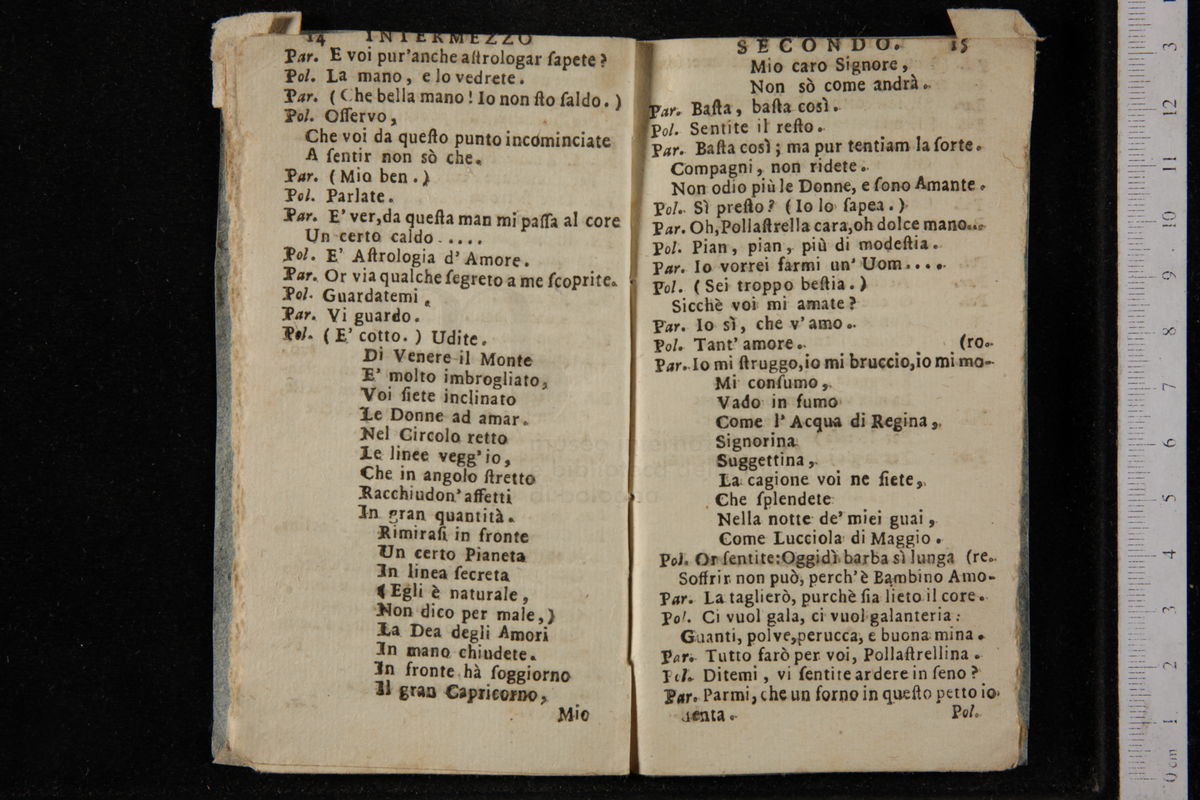 14 INTERMEZZO
Par. E voi pur'anche aſtrologar ſapete?
Pol. La mano, e lo vedrete.
Par. (Che bella mano! Io non ſto ſaldo.)
Pol. Oſſervo,
Che voi da queſto punto incominciate
A ſentir non sò che.
Par. (Mio ben.)
Pol. Parlate.
Par. E' ver, da queſta man mi paſſa al core
Un certo caldo.....
Pol. E' Aſtrologia d'Amore.
Par. Or via qualche ſegreto a me ſcoprite.
Pol. Guardatemi.
Par. Vi guardo.
Pol. (E' cotto.) Udite.
Di Venere il Monte
E' molto imbrogliato,
Voi ſiete inclinato
Le Donne ad amar.
Nel Circolo retto
Le linee vegg'io,
Che in angolo ſtretto
Racchiudon'affetti
In gran quantità.
Rimiraſi in fronte
Un certo Pianeta
In linea ſecreta
(Egli è naturale,
Non dico per male,)
La Dea degli Amori
In mano chiudete.
In fronte hà ſoggiorno
Il gran Capricorno,
Mio
SECONDO. 15
Mio caro Signore,
Non sò come andrà.
Par. Baſta, baſta così.
Pol. Sentite il reſto.
Par. Baſta così; ma pur tentiam la ſorte.
Compagni, non ridete.
Non odio più le Donne, e ſono Amante.
Pol. Sì preſto? (Io lo ſapea.)
Par. Oh, Pollaſtrella cara, oh dolce mano...
Pol. Pian, pian, più di modeſtia.
Par. Io vorrei farmi un' Uom....
Pol. (Sei troppo beſtia.)
Sicchè voi mi amate?
Par. Io sì, che v'amo.
Pol. Tant' amore. (ro.
Par. Io mi ſtruggo, io mi bruccio, io mi mo-
Mi conſumo,
Vado in fumo
Come l' Acqua di Regina,
Signorina
Suggettina,
La cagione voi ne ſiete,
Che ſplendete
Nella notte de' miei guai,
Come Lucciola di Maggio.
Pol. Or ſentite: Oggidì barba sì lunga (re.
Soffrir non può, perch'è Bambino Amo-
Par. La taglierò, purchè ſia lieto il core.
Pol. Ci vuol gala, ci vuol galanteria:
Guanti, polve, perucca, e buona mina.
Par. Tutto farò per voi, Pollaſtrellina.
Pol. Ditemi, vi ſentite ardere in ſeno?
Par. Parmi, che un forno in queſto petto io
ſenta. Pol.
0 cm 1 2 3 4 5 6 7 8 9 10 11 12 3